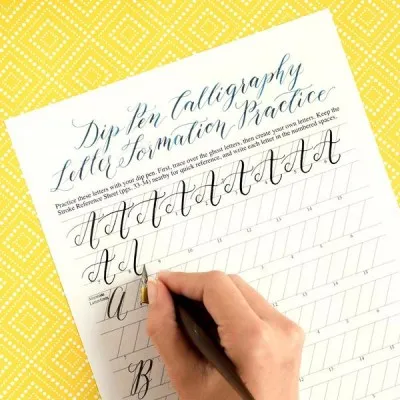 Dip Pen Calligraphy
Letter Formation Practice
Practice these letters with your dip pen. First, trace over the ghost letters, then create your own letters. Keep the
Stroke Reference Sheet (pgs. 33-34) nearby for quick reference, and write each letter in the numbered spaces.
A A A A A A A A A
A A
A
B